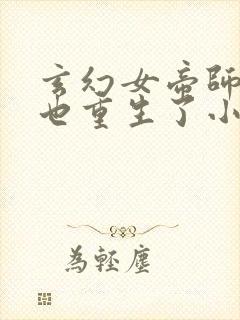 玄幻女帝師
也重生了小
為輕塵